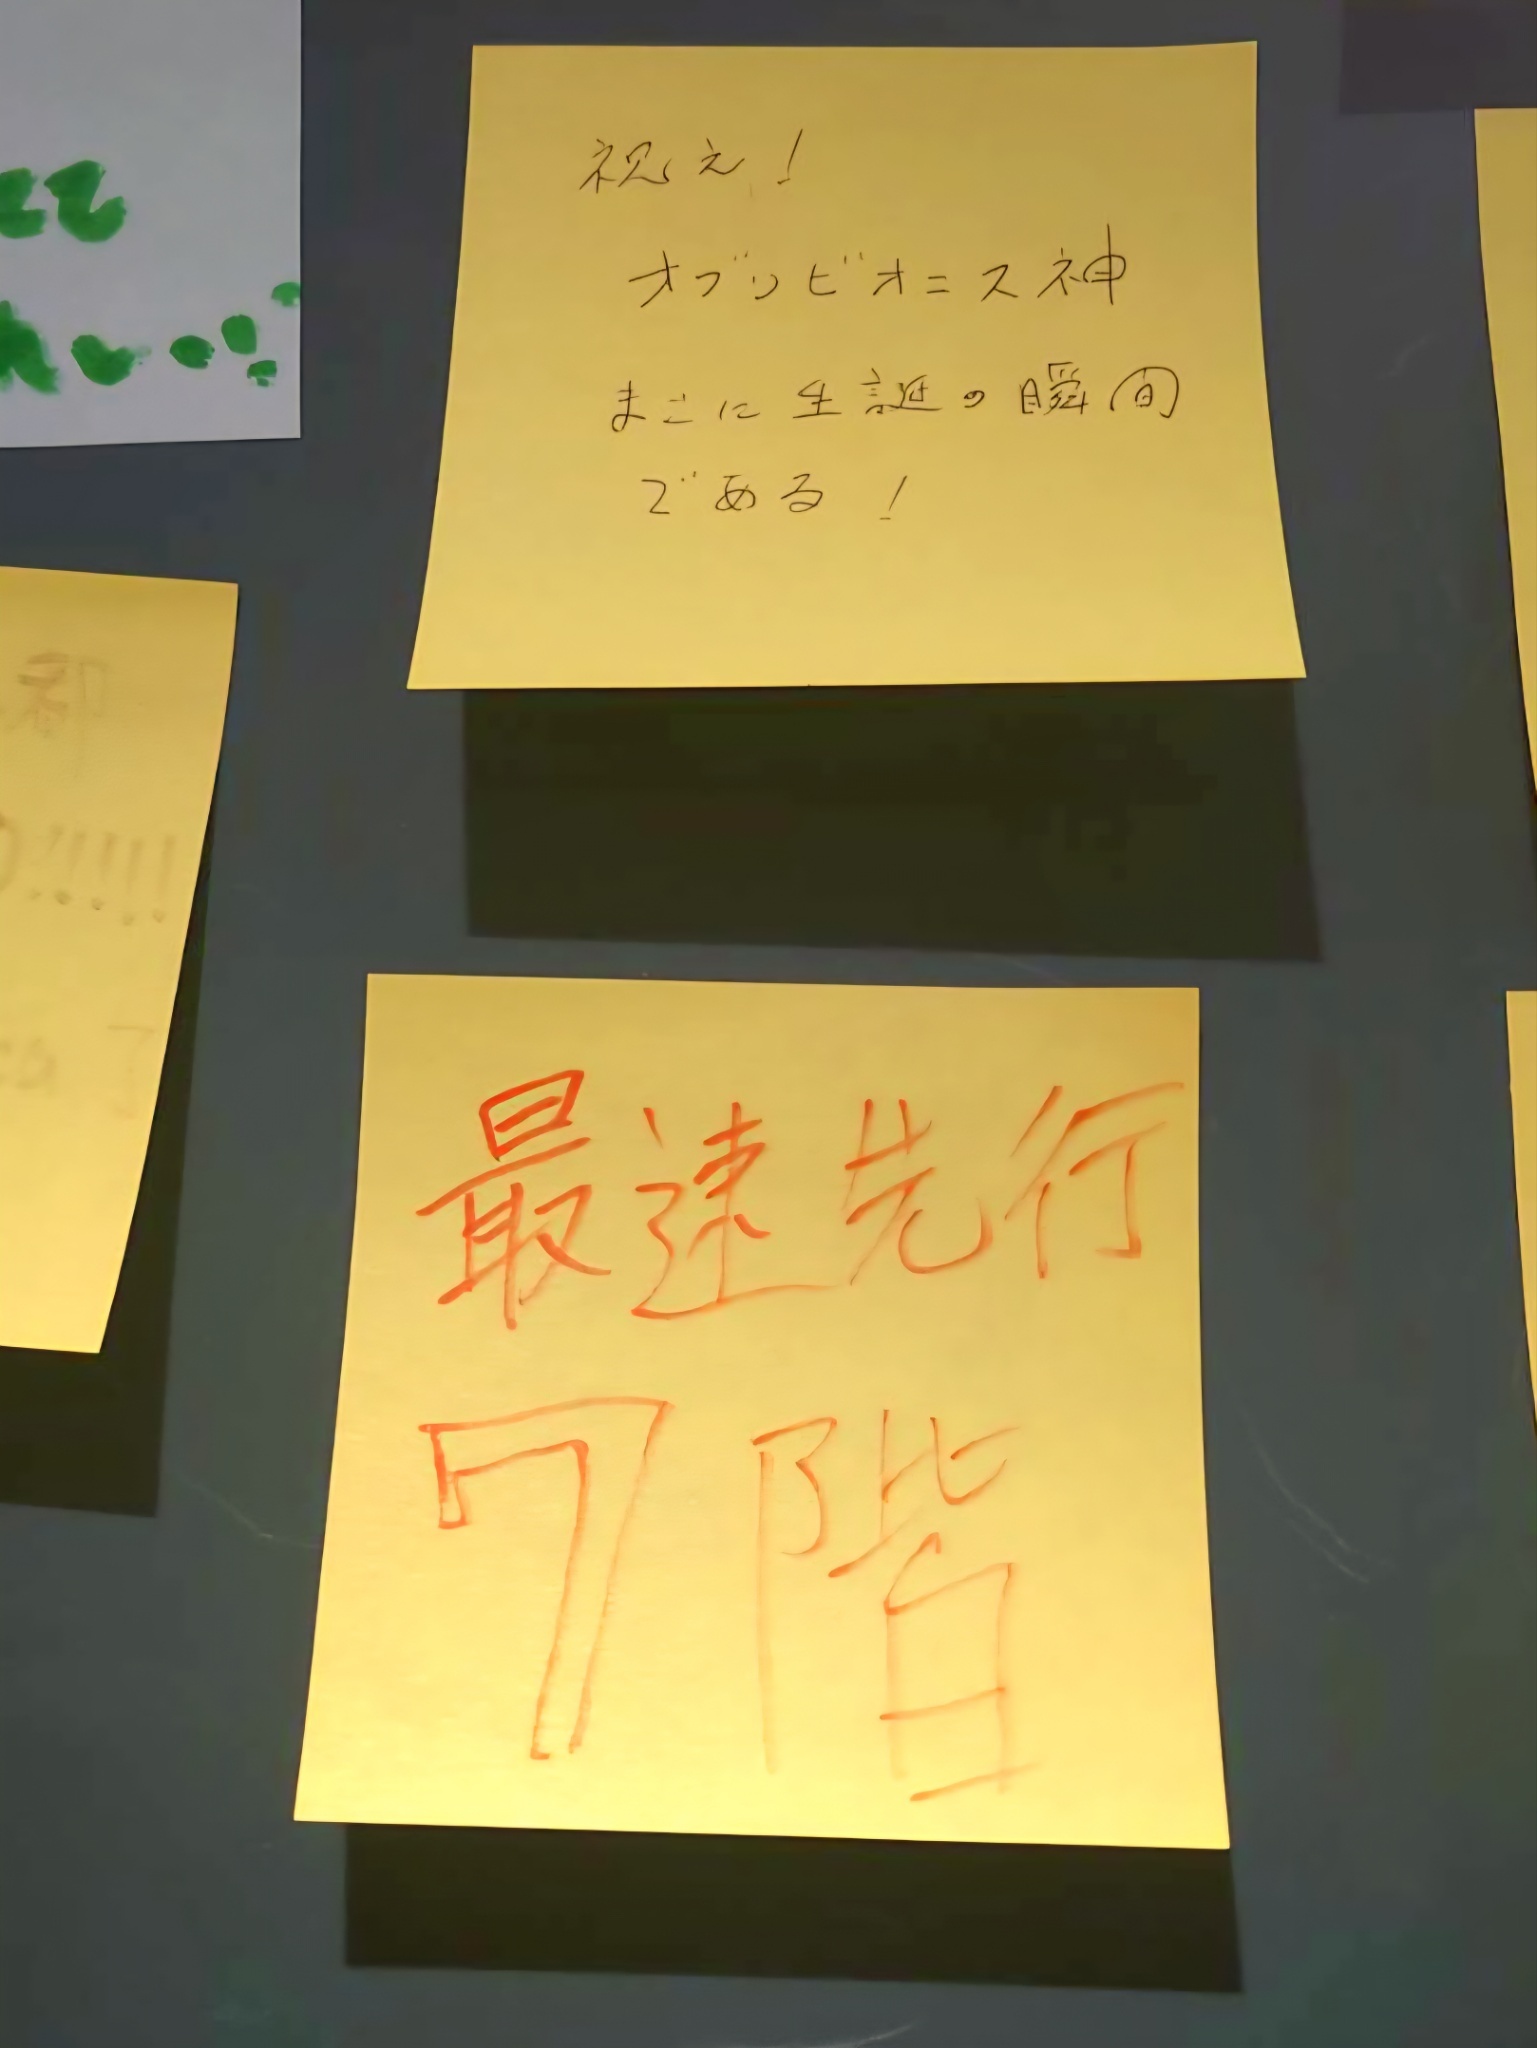 祝え!
オブリビオニス神
まさに生誕の瞬間
である!
最速先行
7階